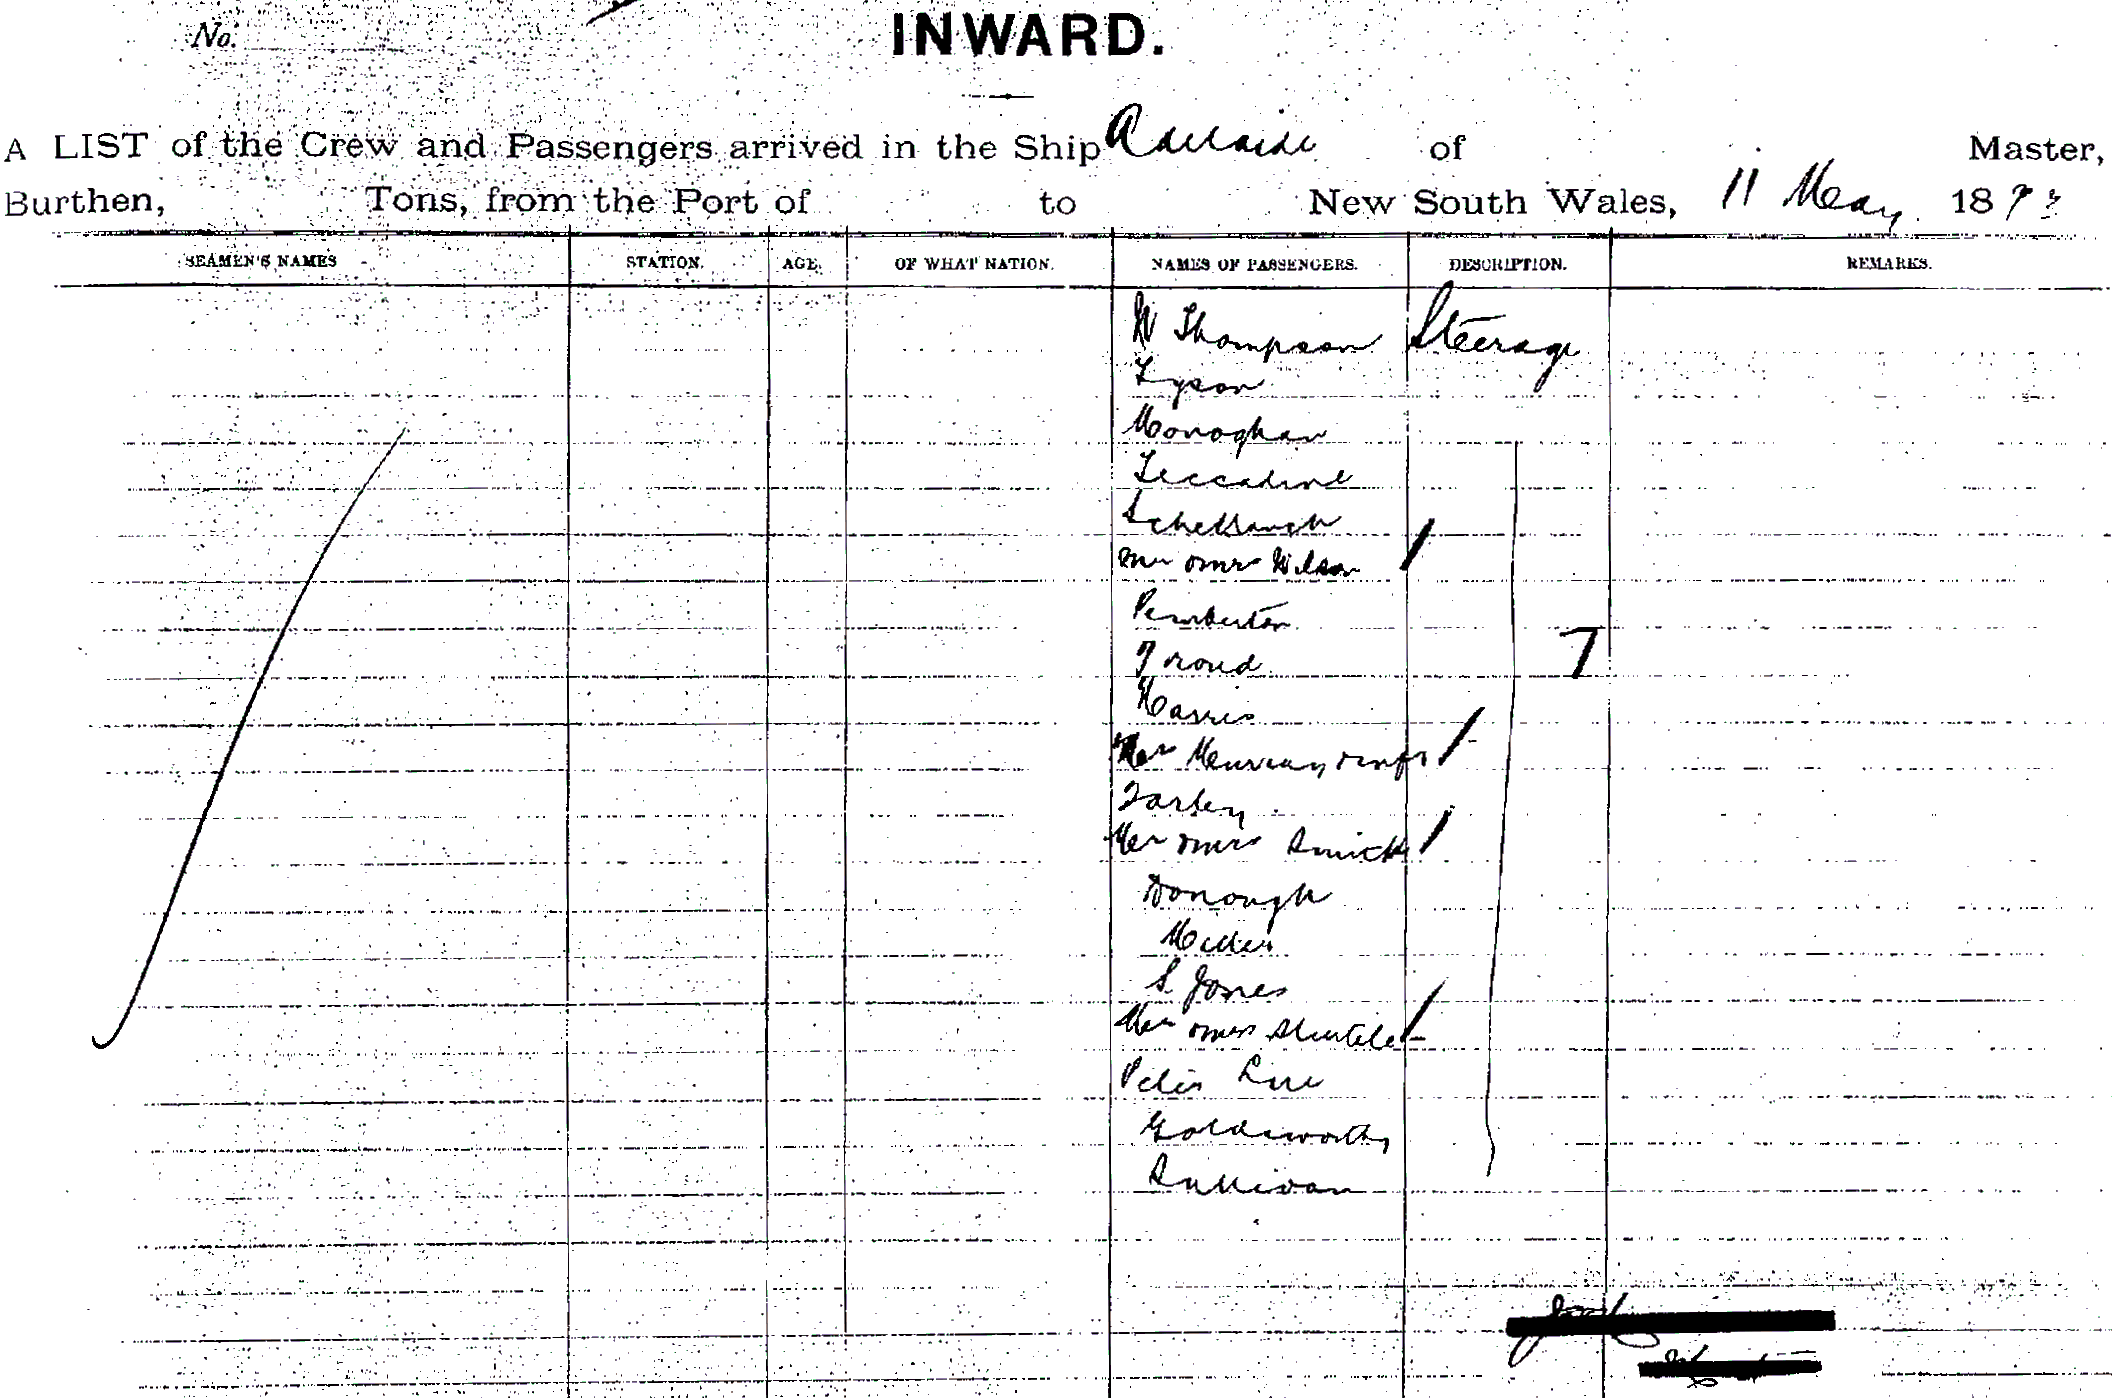 No.
INWARD.
A LIST of the Crew and Passengers arrived in the Ship Adelaide of Master,
Burthen, Tons, from the Port of to New South Wales, 11 May 189
SEAMEN'S NAMES STATION. AGE. OF WHAT NATION. NAMES OF PASSENGERS. DESCRIPTION. REMARKS.
W Thompson Steerage
Tyson
Monoghan
Wilson
Pemberton
Proud
Harris
Mrs Murray
Smith
Donough
Miller
S. Jones
Peter
Goldsworthy
Sullivan